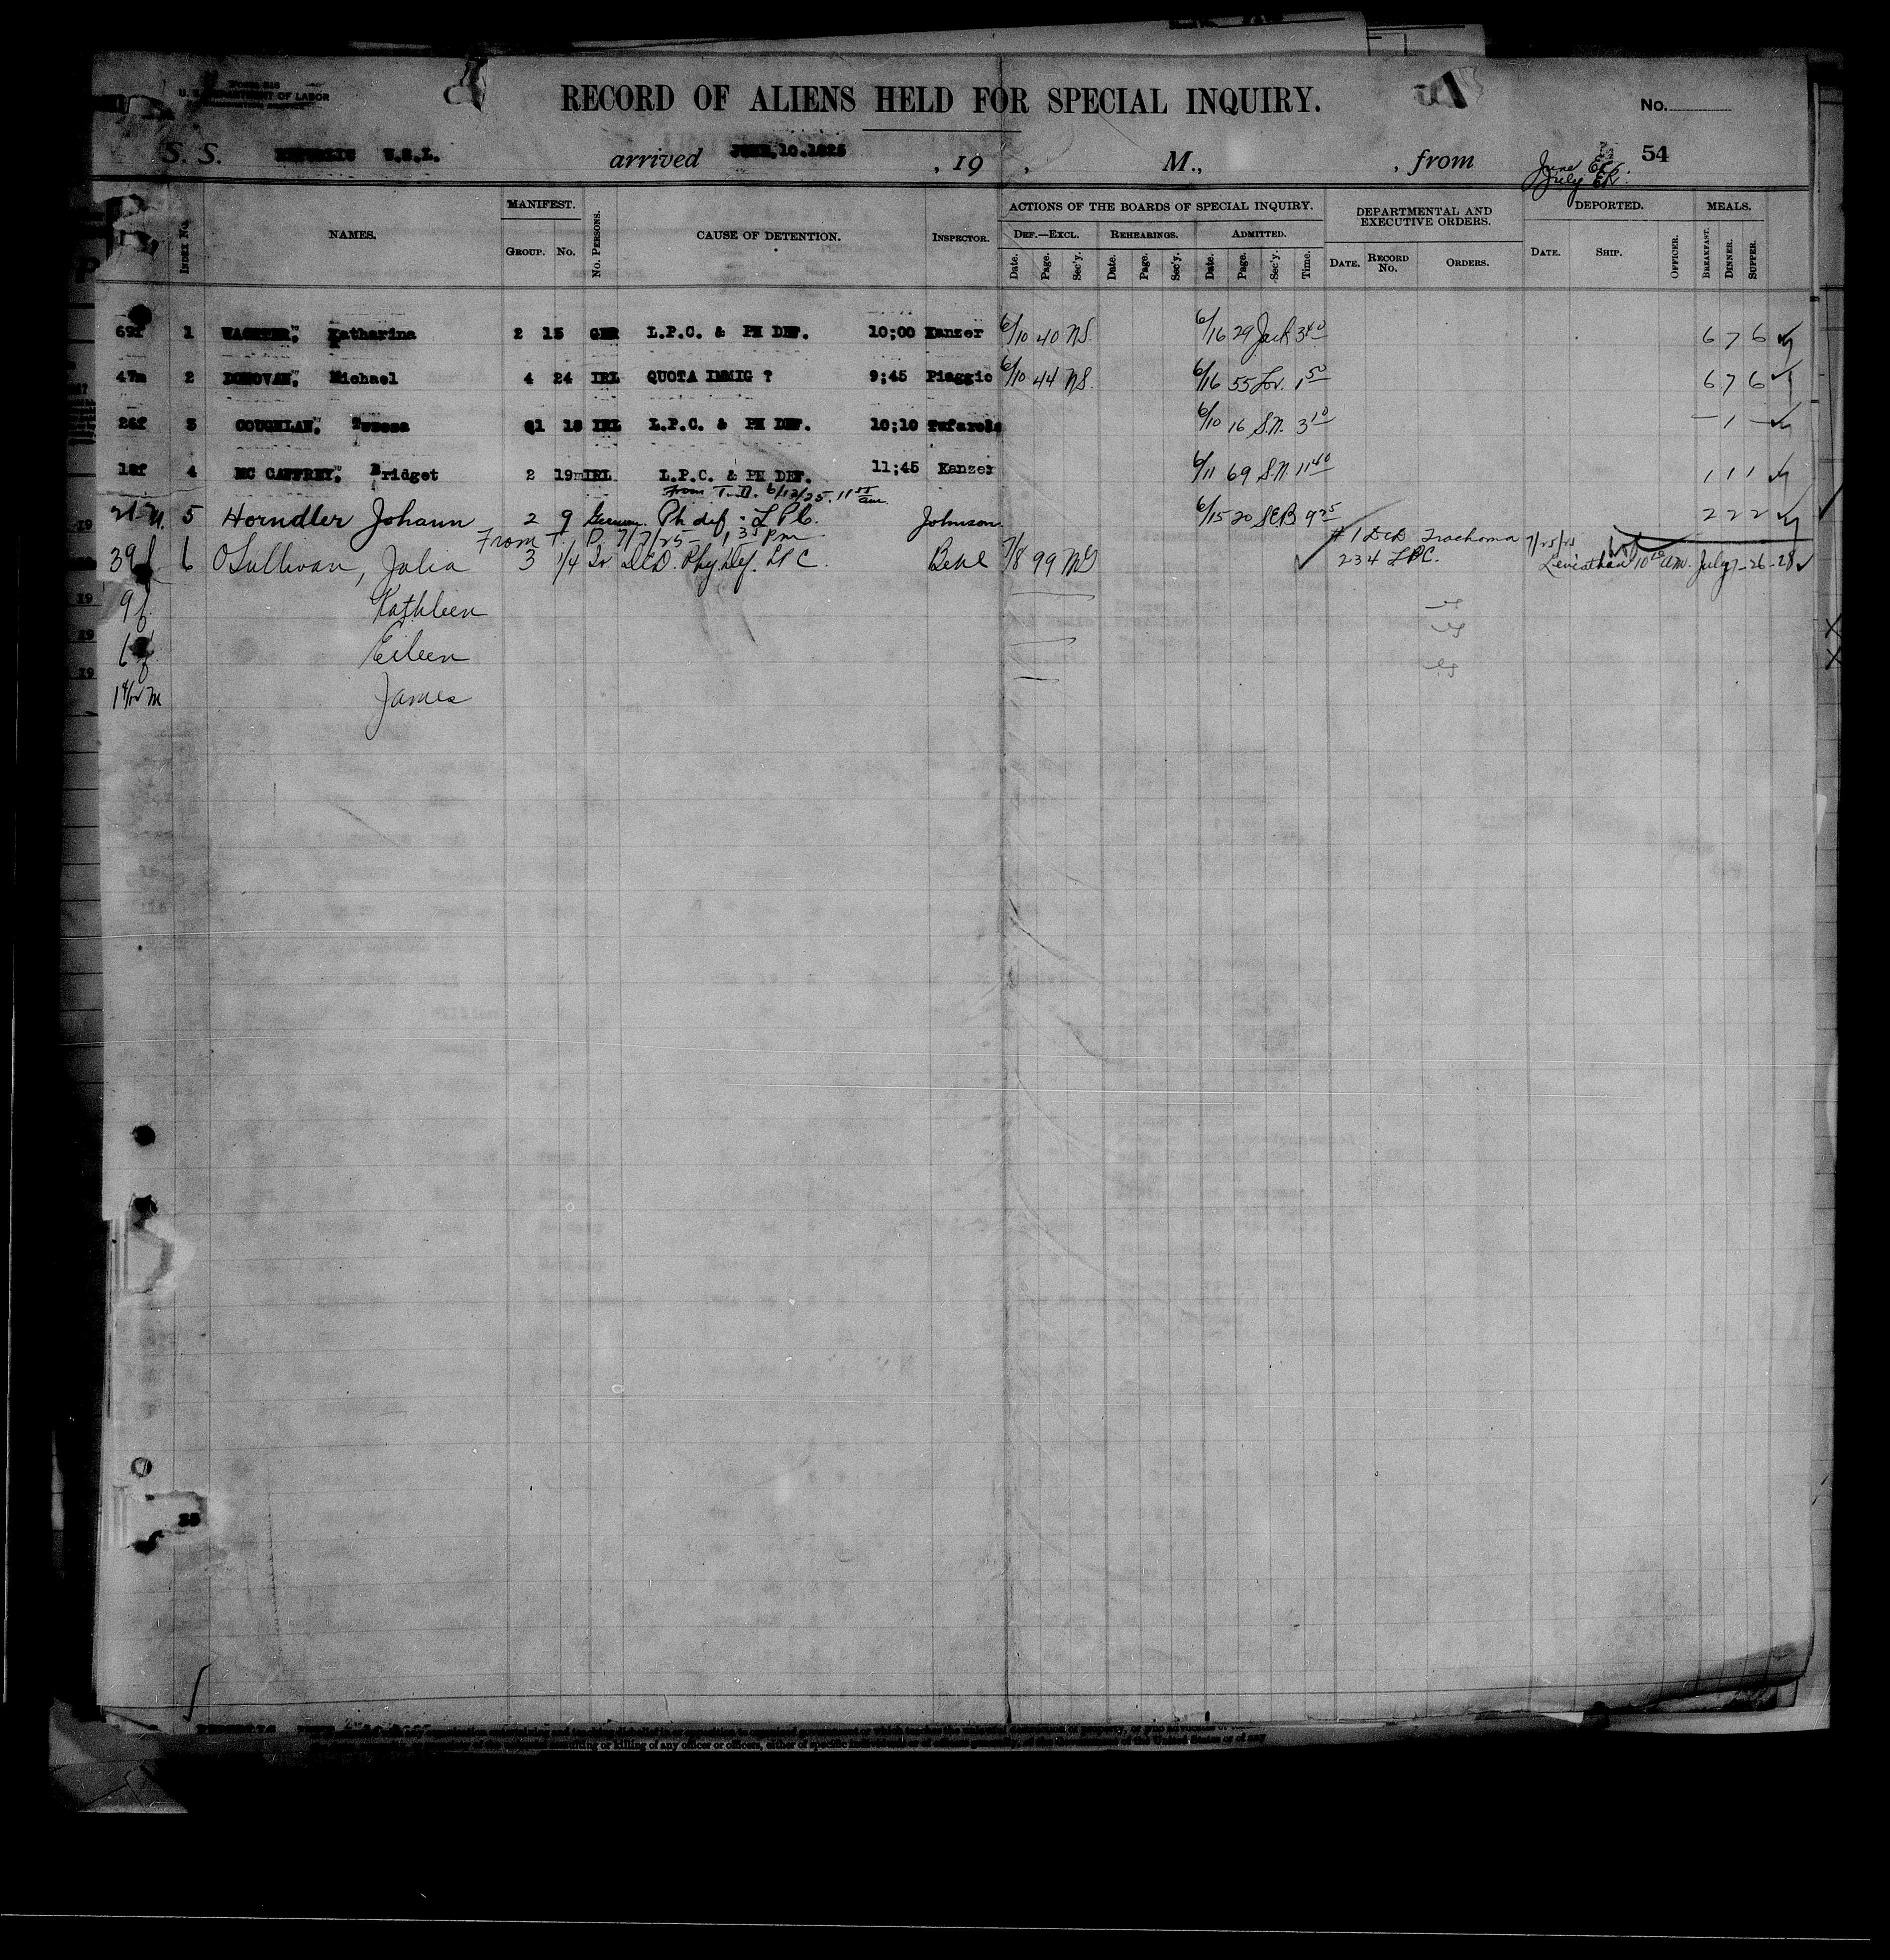 U. S. DEPARTMENT OF LABOR
RECORD OF ALIENS HELD FOR SPECIAL INQUIRY.
No.
S. S. REPUBLIC U.S.L. arrived JUNE,10.1925 , 19 , M., , from
54
June
July
INDEX No.
NAMES.
MANIFEST.
GROUP. No.
No. PERSONS.
CAUSE OF DETENTION.
INSPECTOR.
ACTIONS OF THE BOARDS OF SPECIAL INQUIRY.
DEF.—EXCL. REHEARINGS. ADMITTED.
Date. Page. Sec'y. Date. Page. Sec'y. Date. Page. Sec'y. Time.
DEPARTMENTAL AND EXECUTIVE ORDERS.
DATE. RECORD No. ORDERS.
DEPORTED.
DATE. SHIP. OFFICER.
MEALS.
BREAKFAST. DINNER. SUPPER.
69f 1 WACHTER, Katharina 2 15 GER L.P.C. & PH DEF. 10:00 Kanzer 6/10 40 NS. 6/16 29 Jack 3 40 6 7 6
47m 2 DONOVAN, Michael 4 24 IRL QUOTA IMMIG ? 9;45 Piaggio 6/10 44 NS. 6/16 55 Lov. 1 50 6 7 6
26f 3 COUGHLAN, Teresa 18 IRL L.P.C. & PH DEF. 10;10 6/10 16 S.N. 3 10 — 1 —
18f 4 MC CAFFREY, Bridget 2 19 IRL L.P.C. & PH DEF. 11;45 Kanzer 6/11 69 S.N. 11 40 1 1 1
From T.D. 6/12/25. 11 55 am
21 M. 5 Horndler Johann 2 9 German Ph def. LPC. Johnson 6/15 20 SEB 9 25 2 2 2
From T. D. 7/7/25 - 1 35 pm
39 f 6 O'Sullivan, Julia 3 1/4 Ir DCD. Phy. Def. LPC. 7/8 99 # 1 DCD Trachoma 7/25/25
234 LPC. Leviathan 10 am. July 27-26-28
9 f Kathleen
6 f Eileen
James